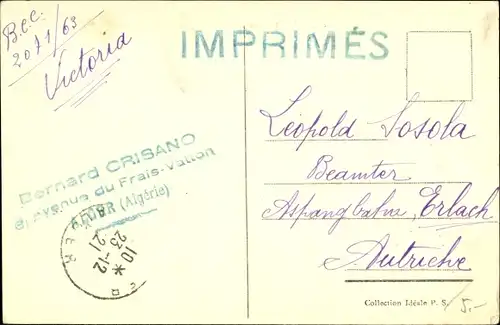 B.C.C.
2071/63
Victoria
IMPRIMÉS
Bernard CRISANO
Avenue du Frais-Vallon
ALGER (Algérie)
10 *
23 - 12
21
Léopold Sosola
Beamter
Aspangbahn, Erlach
Autriche
Collection Idéale P. S.
5.-